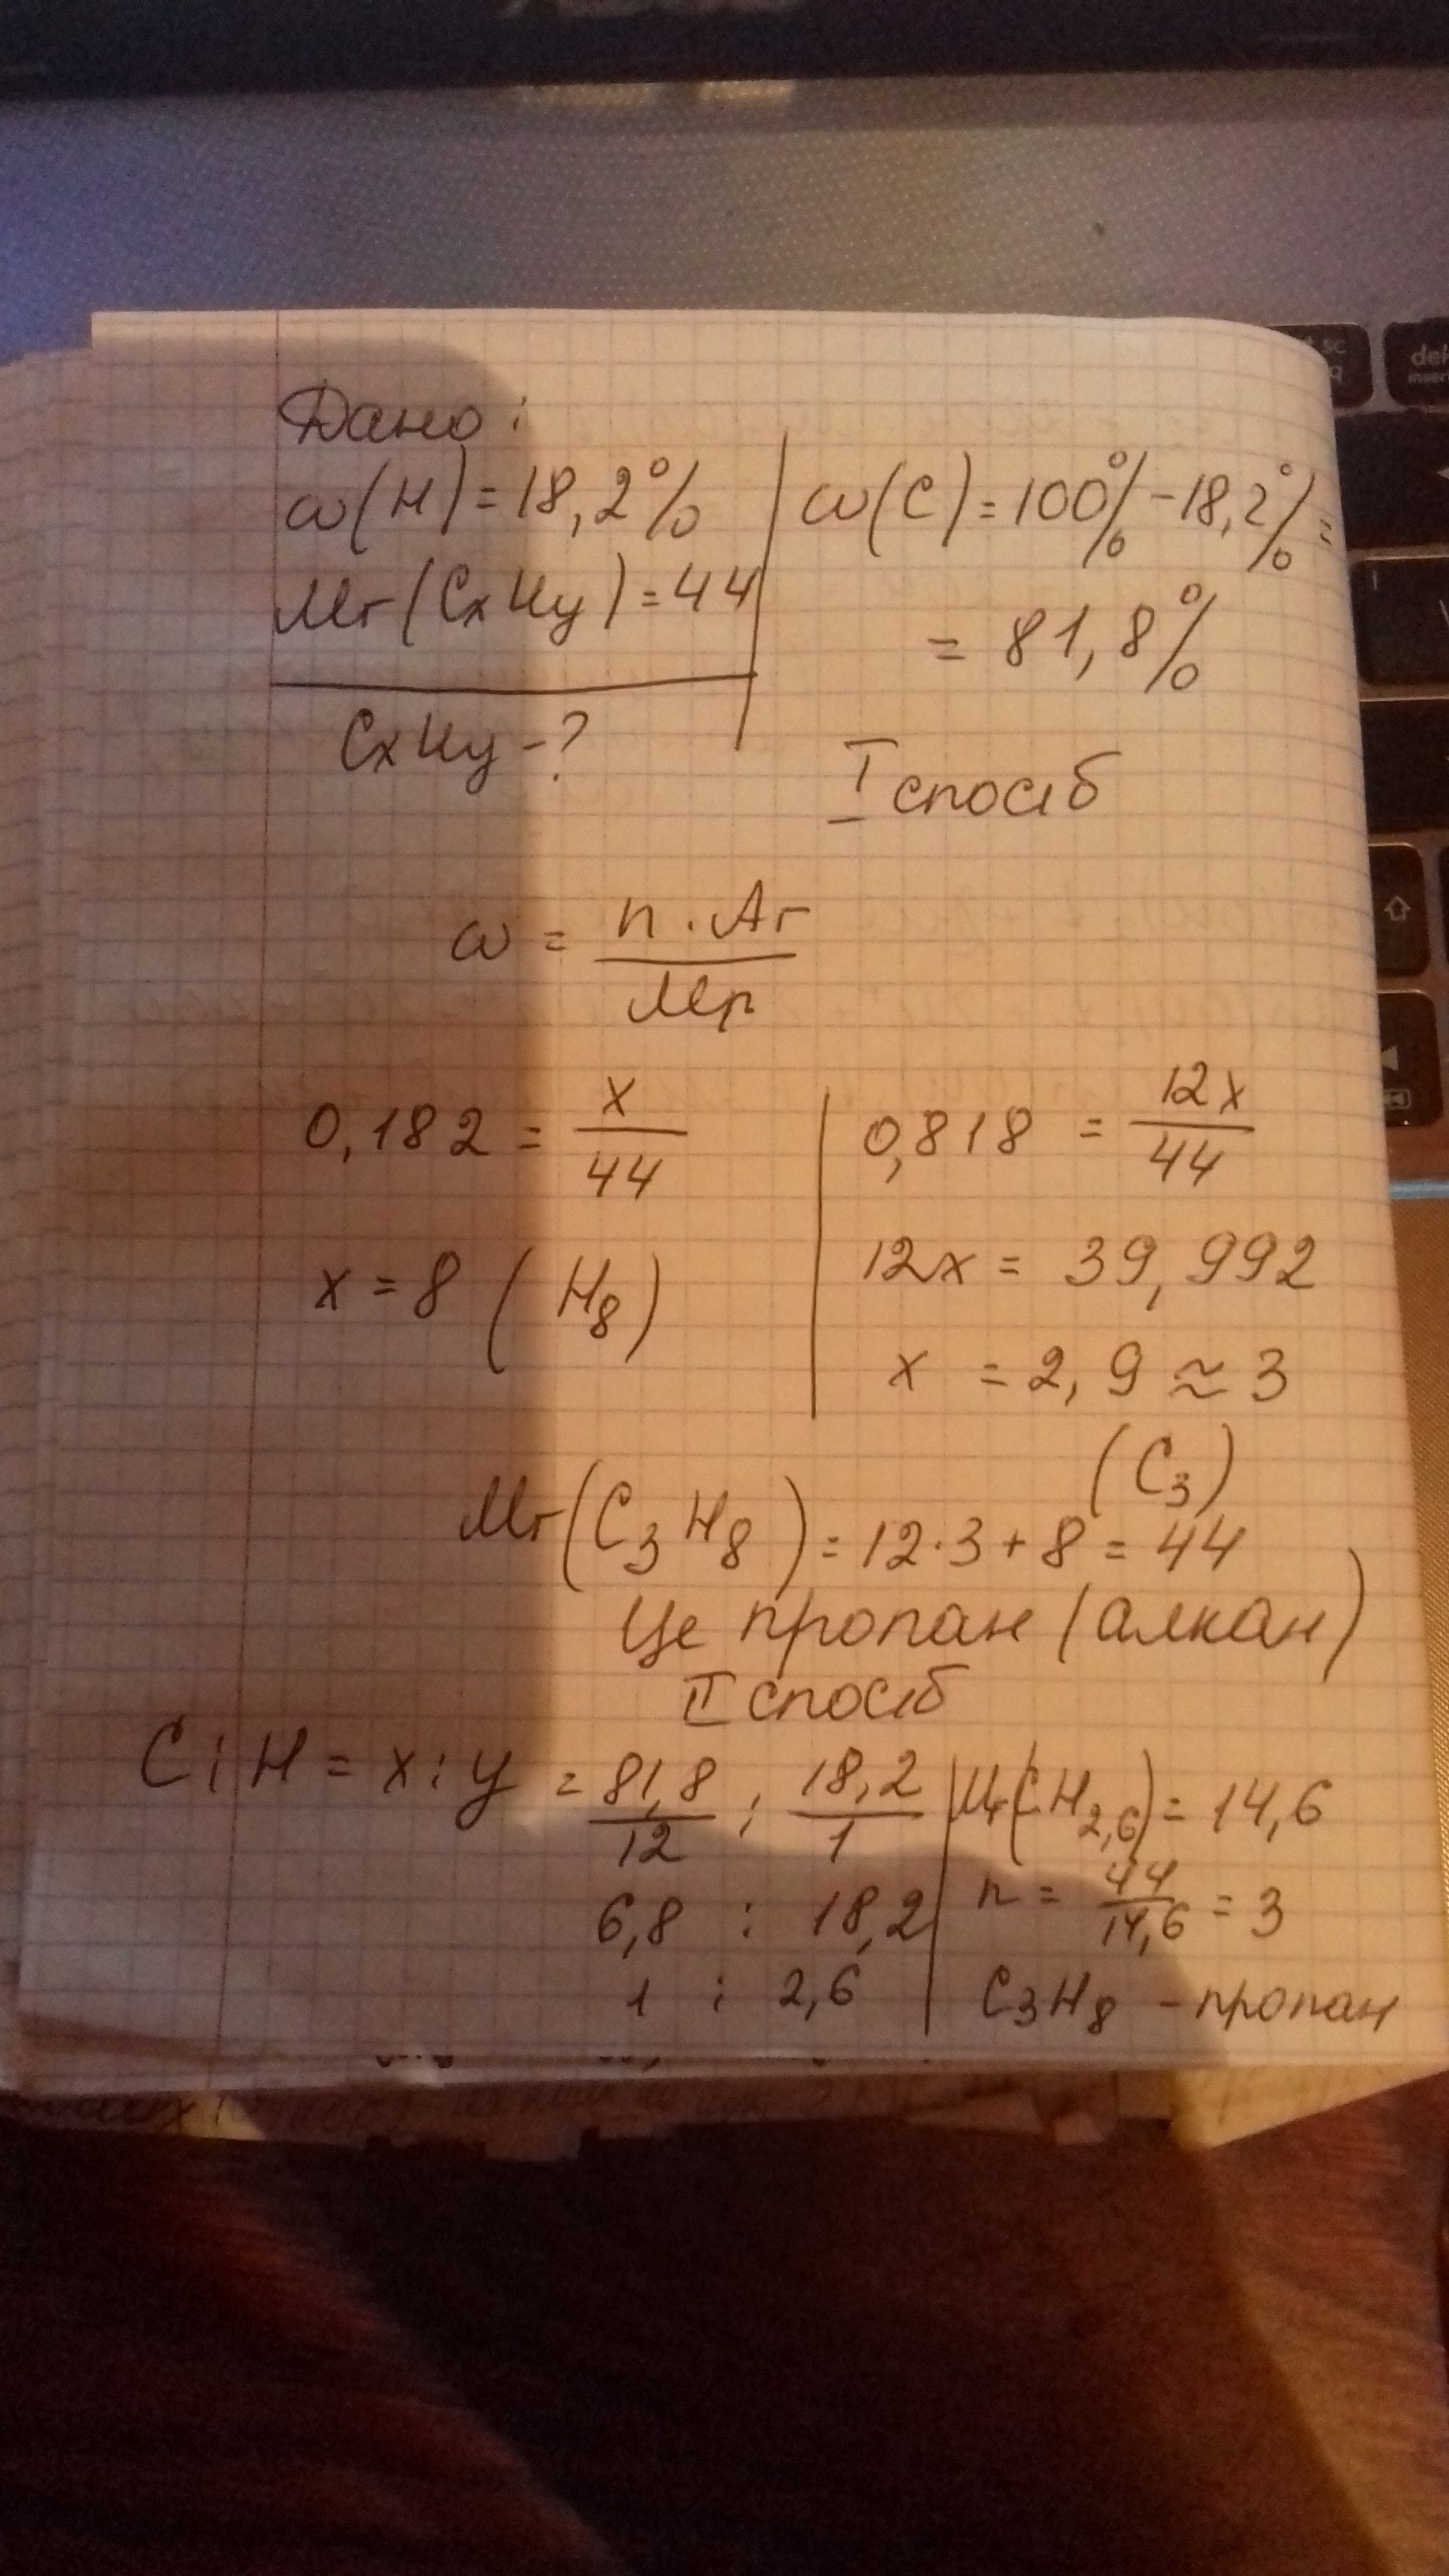 Дано:
ω(H) = 18,2%
Mr(CxHy) = 44
CxHy - ?
ω(C) = 100% - 18,2% =
= 81,8%
I спосіб
ω = n · Ar / Mr
0,182 = x / 44
x = 8 (H₈)
0,818 = 12x / 44
12x = 39,992
x = 2,9 ≈ 3
(C₃)
Mr(C₃H₈) = 12·3 + 8 = 44
Це пропан (алкан)
II спосіб
C : H = x : y = 81,8 / 12 : 18,2 / 1
6,8 : 18,2
1 : 2,6
Mr(CH₂,₆) = 14,6
n = 44 / 14,6 = 3
C₃H₈ - пропан
del
insert
sc